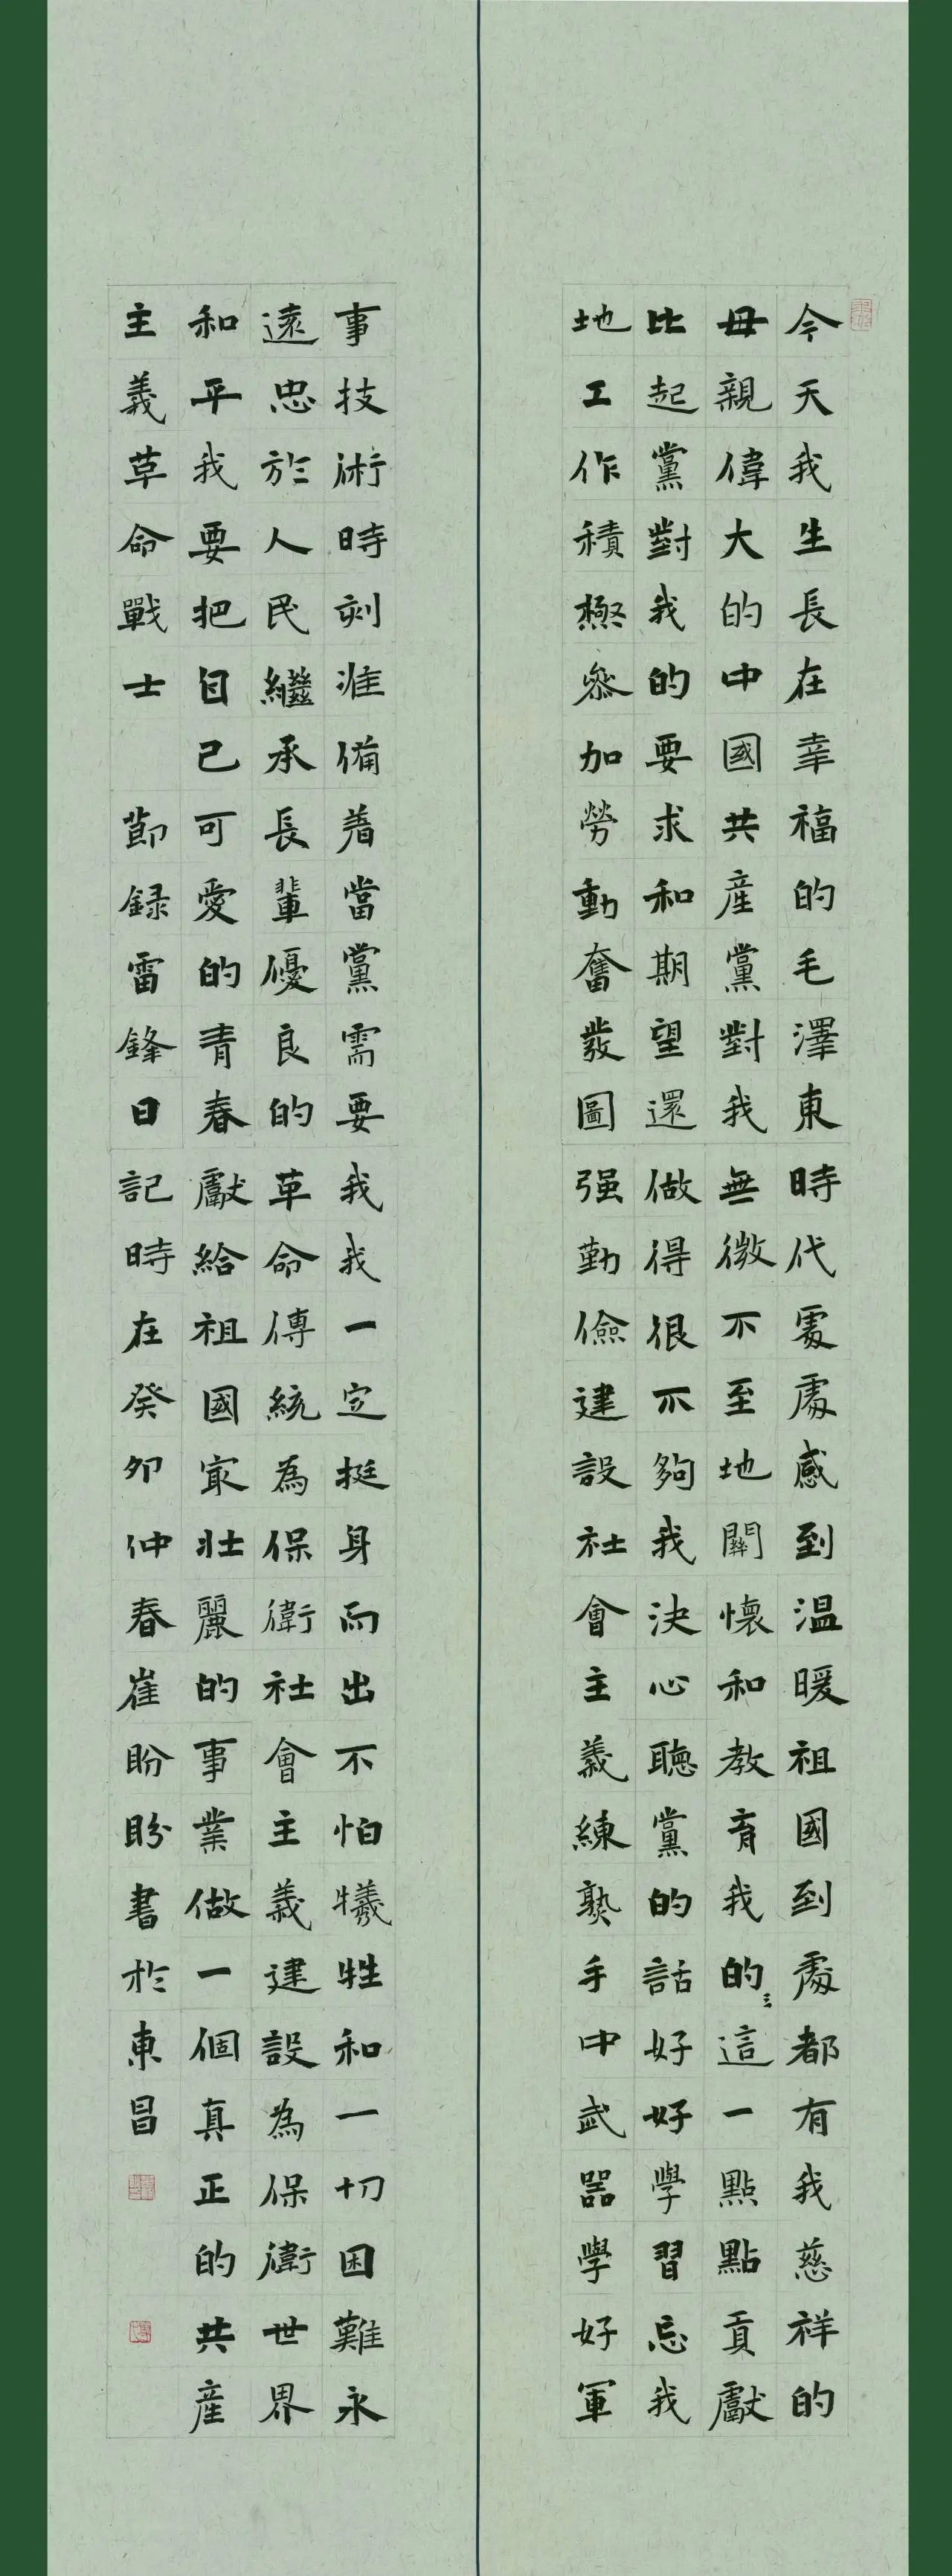 今天我生長在幸福的毛澤東時代處處感到温暖祖國到處都有我慈祥的
毋親偉大的中國共産黨對我無微不至地關懷和教育我的這一點點貢獻
比起黨對我的要求和期望還做得很不夠我決心聽黨的話好好學習忘我
地工作積極參加勞動奮發圖强勤儉建設社會主義練熟手中武器學好軍
事技術時刻准備着當黨需要我我一定挺身而出不怕犧牲和一切困難永
遠忠於人民繼承長輩優良的革命傳統為保衛社會主義建設為保衛世界
和平我要把自己可愛的青春獻給祖國最壯麗的事業做一個真正的共産
主義革命戰士 節録雷鋒日記時在癸卯仲春崔盼盼書於東昌